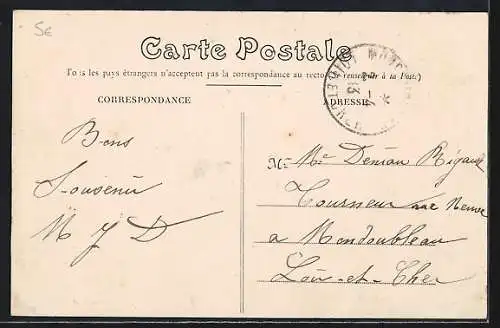 5€
Carte Postale
Tous les pays étrangers n'acceptent pas la correspondance au recto (Se renseigner à la Poste)
CORRESPONDANCE
ADRESSE
Bons
Souvenir
M J D
Me Denian Rigaud
Tourneur rue Neuve
a Mondoubleau
Loir-et-Cher